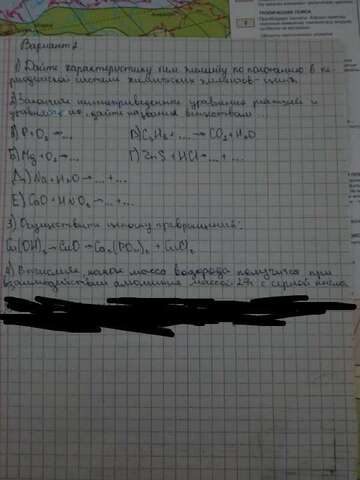 Вариант 2.
1) Дайте характеристику хим элементу по положению в пе-
риодической системе химических элементов-
2) Закончите нижеприведенные уравнения реакций и
уравняйте их, дайте названия веществам...
А) P + O₂ → ...
В) C₂H₆ + .... → CO₂ + H₂O
Б) Mg + O₂ → ...
Г) ZnS + HCl → ... + ...
Д) Na + H₂O → ... + ...
Е) CaO + HNO₃ → ... + ...
3) Осуществить цепочку превращений:
Cu(OH)₂ → CuO → Ca₃(PO₄)₂ + CuCl₂
4) Вычислите, какая масса водорода получится при
взаимодействии алюминия массой с серной кислотой